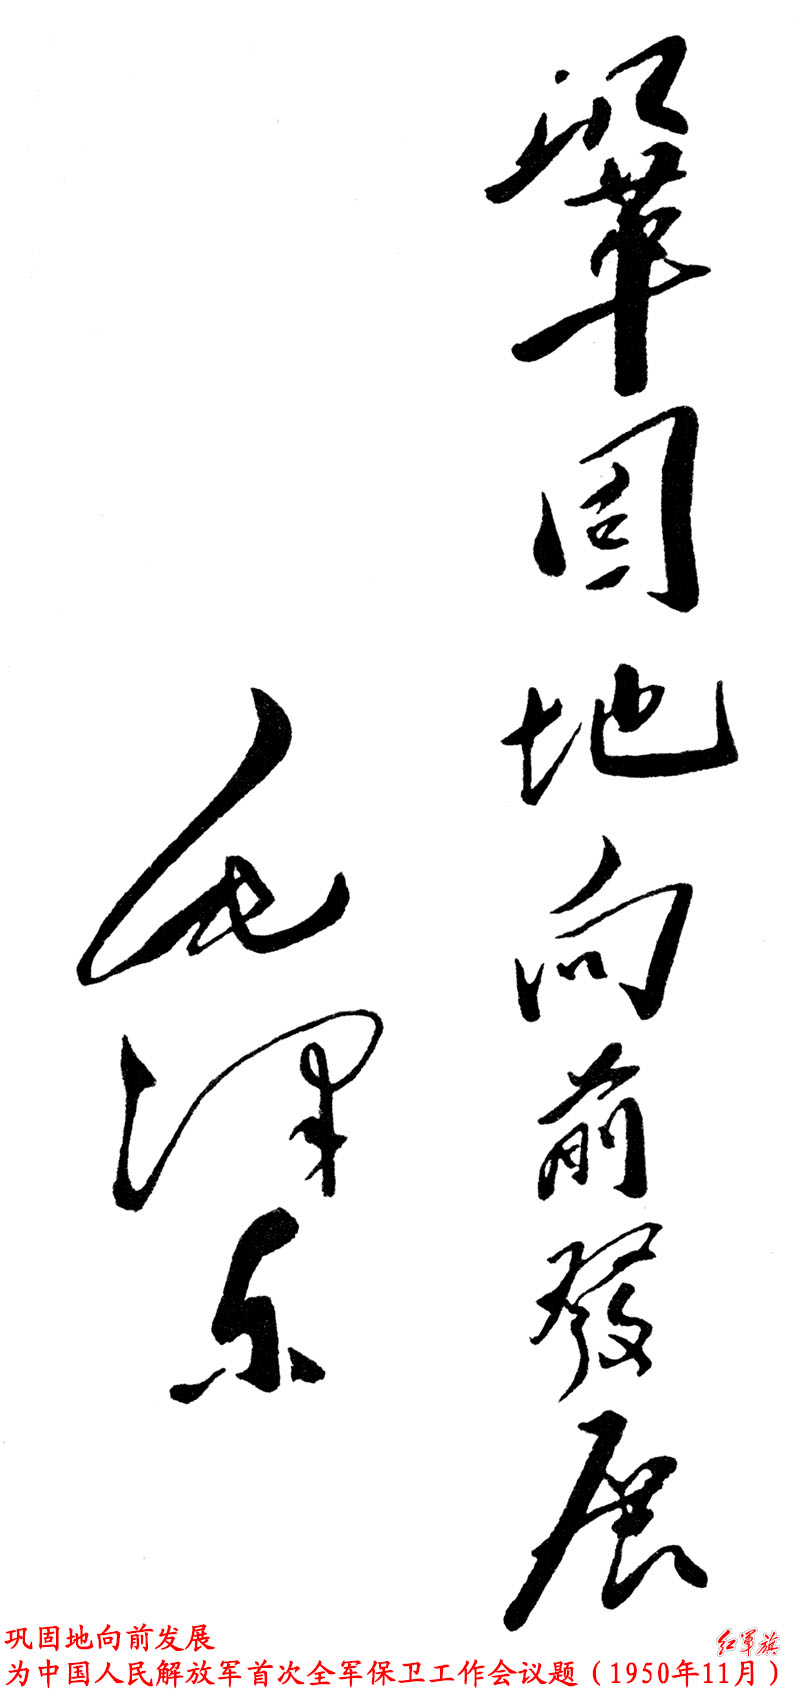 鞏固地向前發展
毛泽东
巩固地向前发展
红军旗
为中国人民解放军首次全军保卫工作会议题（1950年11月）